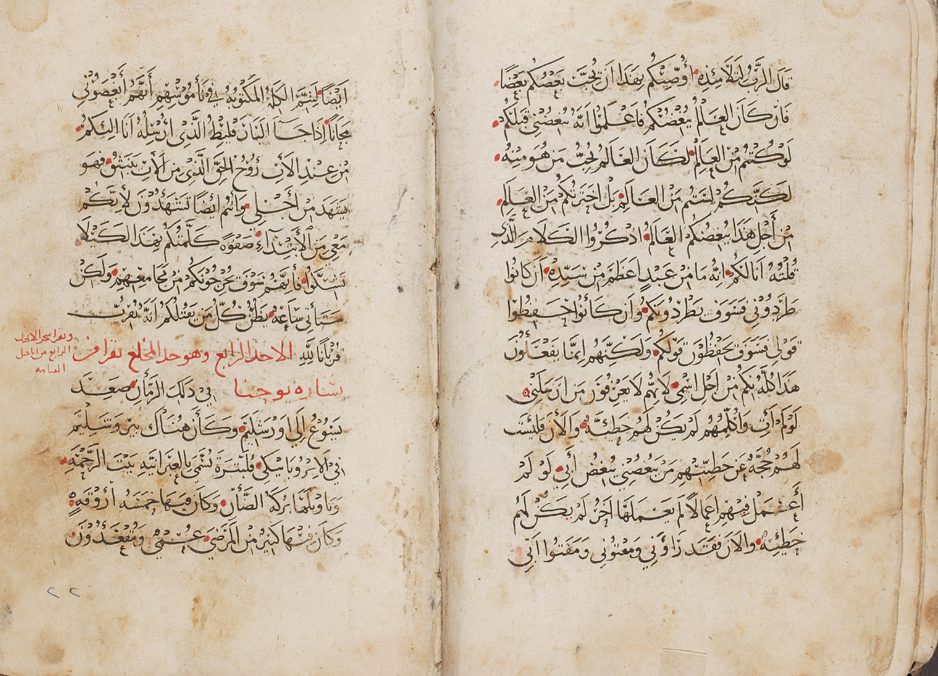 قال الرب لتلاميذه اوصيكم بهذا ان يحب بعضكم بعضا
فان كان العالم يبغضكم فاعلموا انه يبغضني قبلكم
لو كنتم من العالم لكان العالم يحب من هو منه
لكنكم لستم من العالم بل اخترتكم من العالم
من اجل هذا يبغضكم العالم اذكروا الكلام الذي
قلته انا لكم انه ما من عبد اعظم من سيده ان كانوا
طردوني فسوف يطردونكم وان كانوا حفظوا
قولي فسوف يحفظون قولكم ولكنهم انما يفعلون
هذا كله بكم من اجل اسمي لانهم لا يعرفون من ارسلني
لو لم ات واكلمهم لم يكن لهم خطيئه والان فليست
لهم حجه عن خطيتهم من يبغضني يبغض ابي لو لم
اعمل فيهم اعمالا لم يعملها اخر لم يكن لهم
خطيئه والان فقد راوني ومقتوني ومقتوا ابي
ايضا ليتم الكلمه المكتوبه في ناموسهم انهم ابغضوني
مجانا اذا جا البارقليط الذي ارسله انا اليكم
من عند الاب روح الحق الذي من الاب ينبثق فهو
يشهد من اجلي وانتم ايضا تشهدون لانكم
معي من الابتداء كلمتكم بهذا لكيلا
تشكوا فانهم سوف يخرجونكم من مجامعهم ولكن
ستاتي ساعة يظن كل من يقتلكم انه يقرب
قربانا لله الاحد الرابع وهو حد المخلع يقرا من
بشاره يوحنا في ذلك الزمان صعد
يسوع الى اورشليم وكان هناك بيروشليم
بركه تسمى بالعبرانيه بيت الرحمه
وتاويلها بركه الضان وكان فيها خمسه اروقه
وكان فيها كثير من المرضى عمي ومقعدون
الرابع من
٢٢